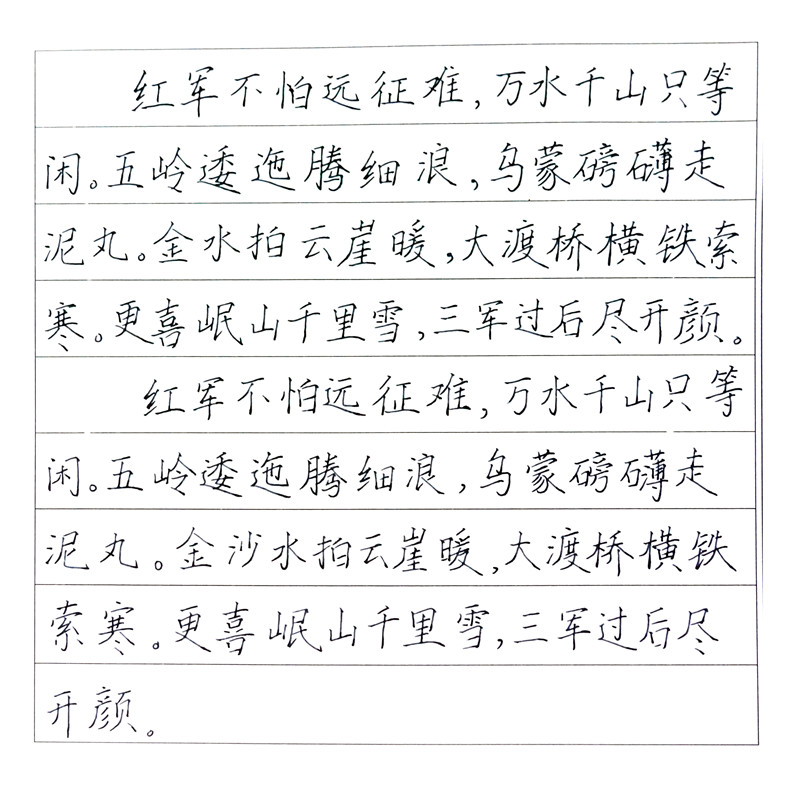 红军不怕远征难,万水千山只等
闲。五岭逶迤腾细浪,乌蒙磅礴走
泥丸。金水拍云崖暖,大渡桥横铁索
寒。更喜岷山千里雪,三军过后尽开颜。
红军不怕远征难,万水千山只等
闲。五岭逶迤腾细浪,乌蒙磅礴走
泥丸。金沙水拍云崖暖,大渡桥横铁
索寒。更喜岷山千里雪,三军过后尽
开颜。